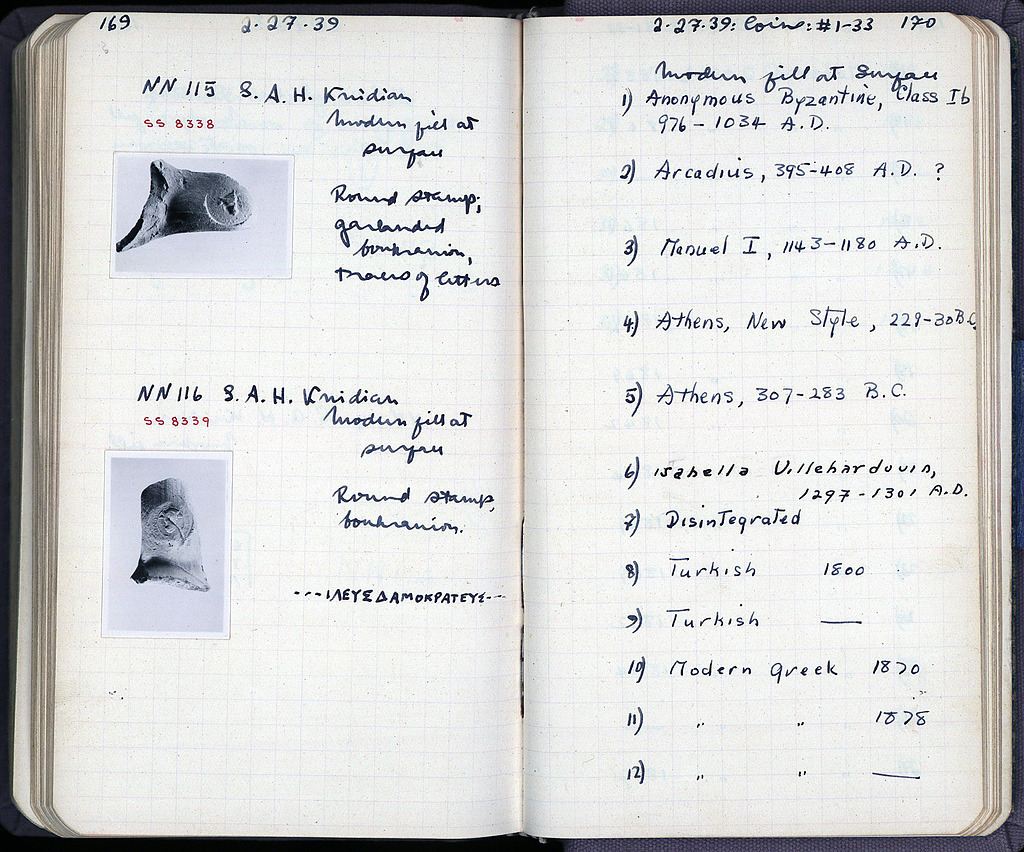 169
2-27-39
NN 115 S.A.H. Knidian
SS 8338
Modern fill at
surface
Round stamp;
garlanded
boukranion,
traces of letters
NN 116 S.A.H. Knidian
SS 8339
Modern fill at
surface
Round stamp,
boukranion.
---ΙΛΕΥΣΔΑΜΟΚΡΑΤΕΥΣ---
2-27-39: Coins: #1-33 170
Modern fill at Surface
1) Anonymous Byzantine, Class Ib
976-1034 A.D.
2) Arcadius, 395-408 A.D. ?
3) Manuel I, 1143-1180 A.D.
4) Athens, New Style, 229-30 B.C.
5) Athens, 307-283 B.C.
6) Isabella Villehardouin,
1297-1301 A.D.
7) Disintegrated
8) Turkish 1800
9) Turkish —
10) Modern Greek 1870
11) " " 1878
12) " " —